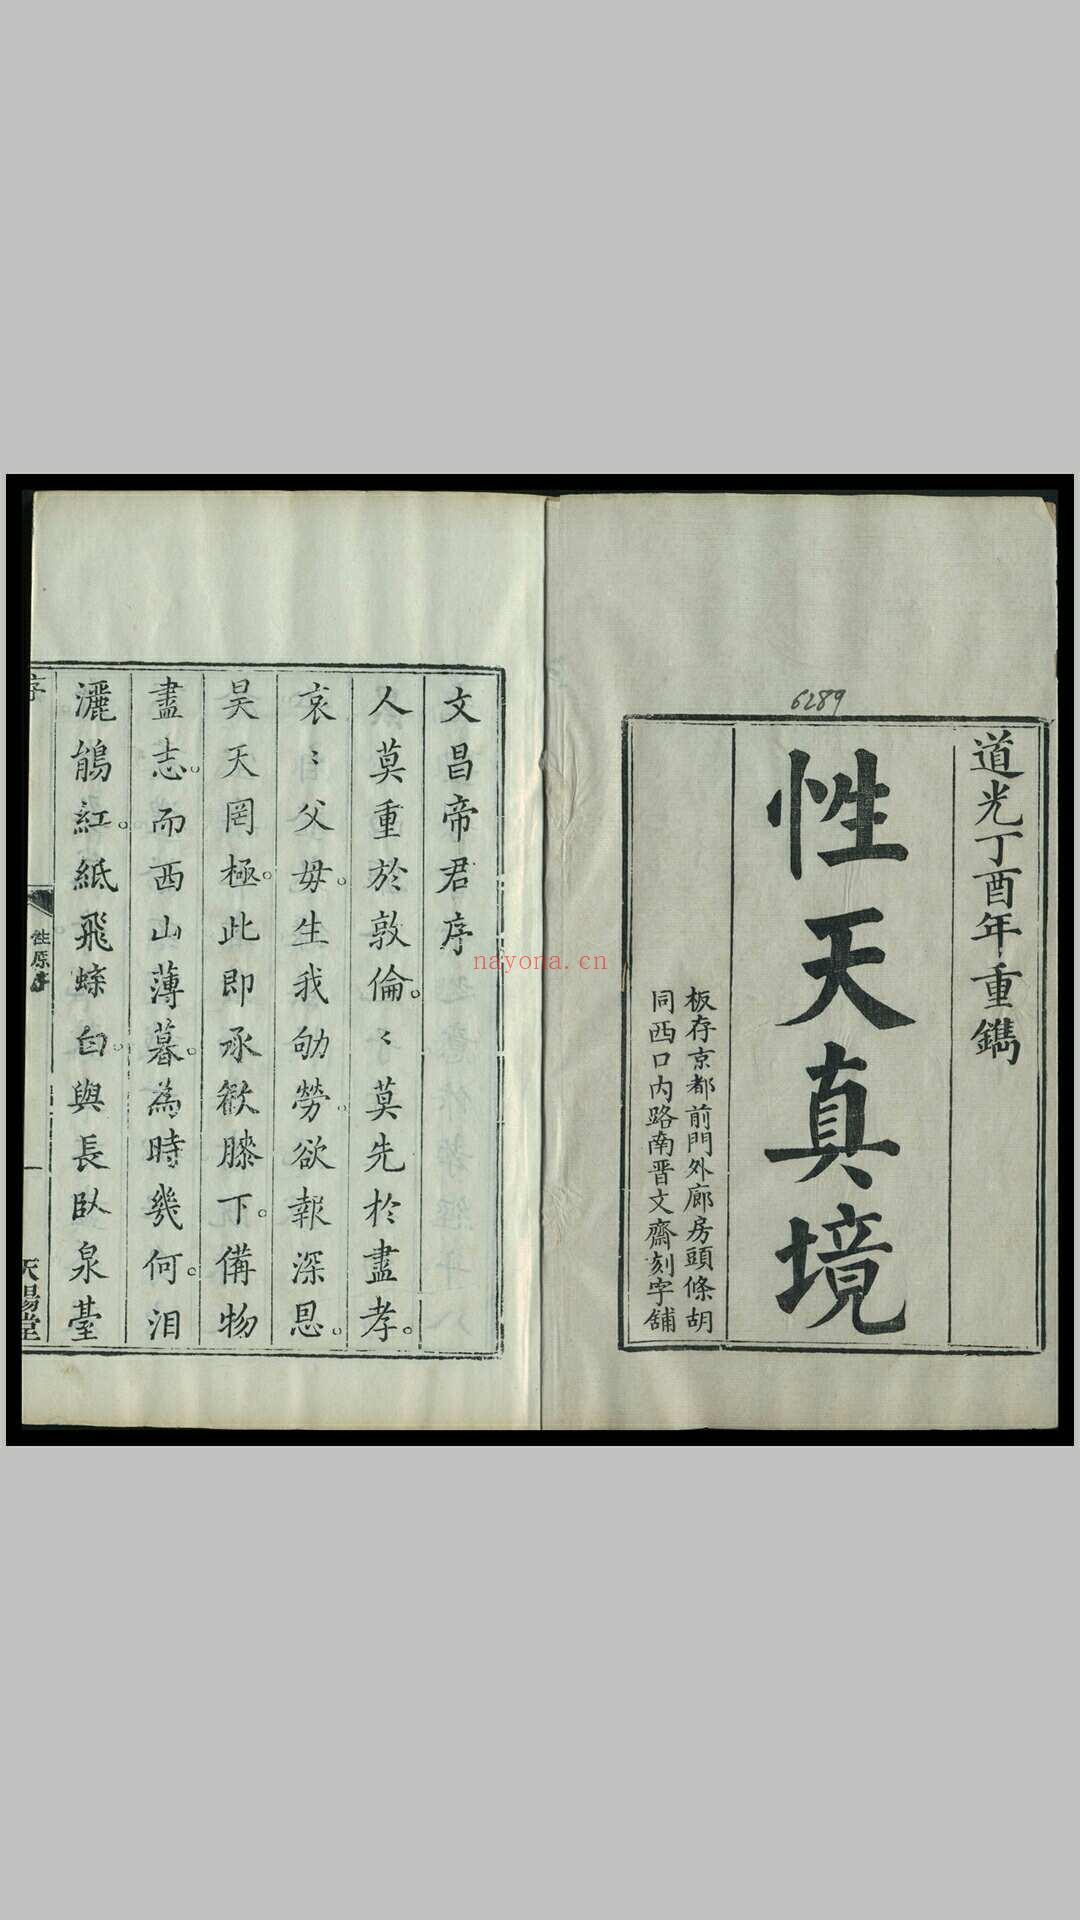 6289
道光丁酉年重鐫
性天真境
板存京都前門外廊房頭條胡
同西口內路南晋文齋刻字舖
文昌帝君序
人莫重於敦倫。〻莫先於盡孝。
哀〻父毋。生我劬勞。欲報深恩。
昊天罔極。此即承歡膝下。備物
盡志。而西山薄暮。為時幾何。泪
灑鵑紅。紙飛蝶白。與長臥泉臺
序
性原序
一
天賜堂
nayona.cn